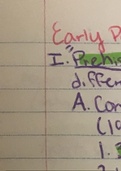 Early
I. "Prehi
differe
A. Con
(10
1.